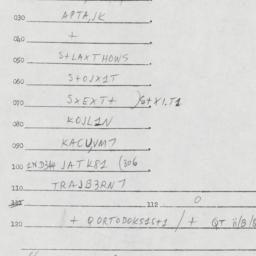 030 APTAJK
040 +
050 S+LAXTHOWS
060 S+OJX1T
070 SXEXT+ )S+XI.T1
080 KOJL1N
090 KACUVM7
100 JATK81 (306
110 TRAJB3RN7
112 0
120 + QORTODOKS1S+1 / + QT